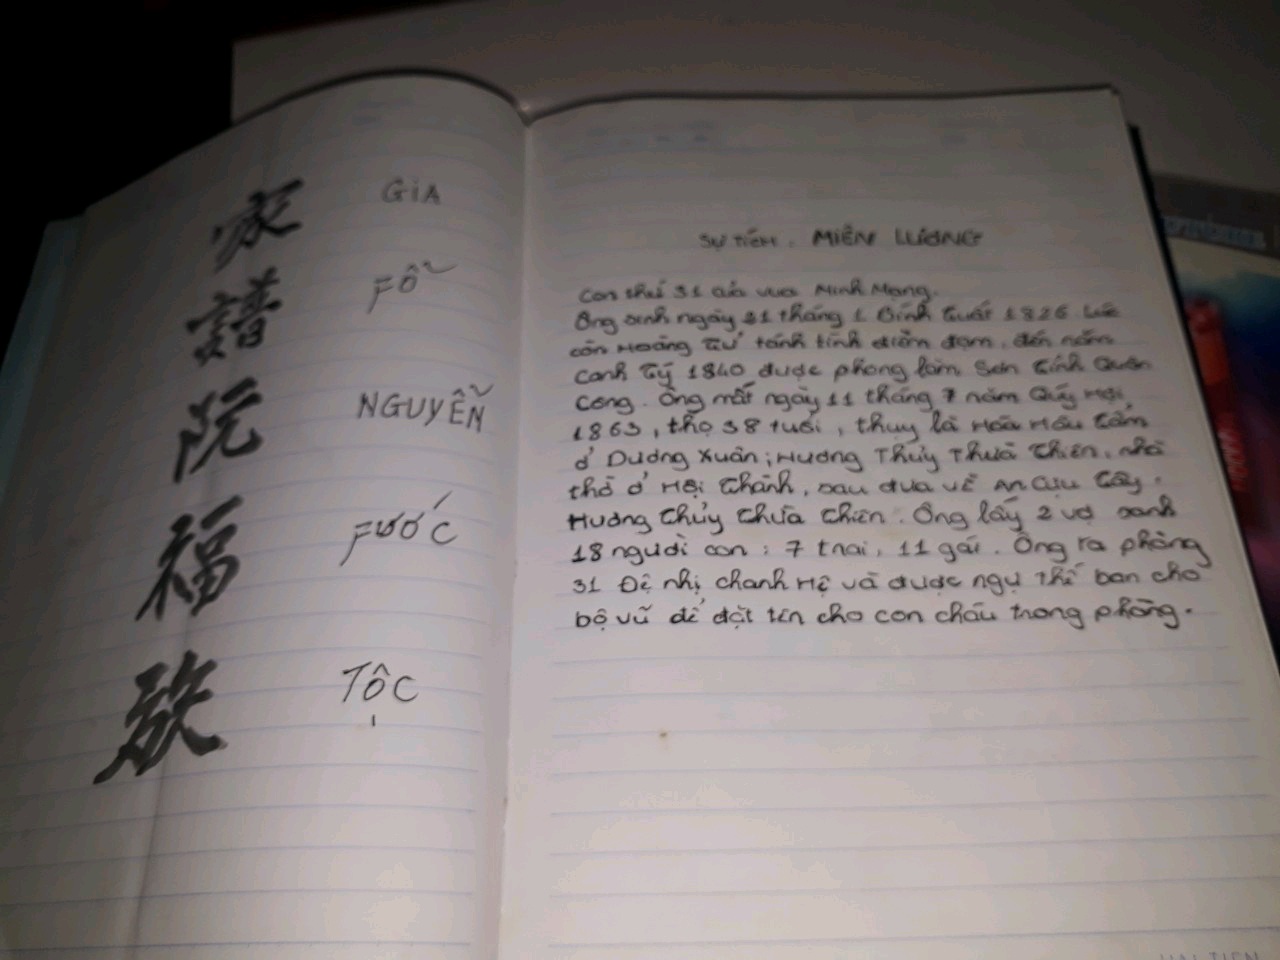 家
譜
阮
福
族
GiA
FỔ
NGUYỄN
FƯỚC
TỘC
Sự Tiếm. MIÊN LƯƠNG
Con thứ 31 của vua Minh Mạng.
Ông sinh ngày 21 tháng 1 Bính Tuất 1826. Lúc
còn Hoàng Tử tánh tính điềm đạm, đến năm
Canh Tý 1840 được phong làm Sơn Tịnh Quận
Công. Ông mất ngày 11 tháng 7 năm Quý Hợi
1863, thọ 38 tuổi, thụy là Hòa Hậu tẩm
ở Dương Xuân; Hương Thủy Thừa Thiên, nhà
thờ ở Hội Thành, sau đưa về An Cựu Tây.
Hương Thủy Thừa Thiên. Ông lấy 2 vợ sanh
18 người con: 7 trai, 11 gái. Ông ra phòng
31 Đệ nhị chánh Hệ và được ngự thế ban cho
bộ vũ để đặt tên cho con cháu trong phòng.